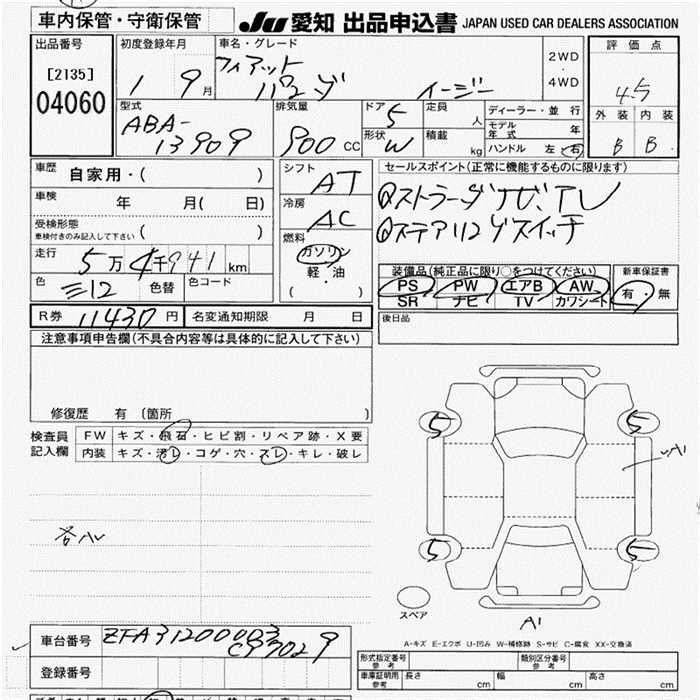 車内保管・守衛保管
JU 愛知 出品申込書 JAPAN USED CAR DEALERS ASSOCIATION
出品番号
[2135]
04060
初度登録年月
1 9月
車名・グレード
フィアット
パンダ イージー
2WD
・
4WD
評価点
4.5
外装 内装
B B
型式
ABA-
13909
排気量
900 CC
ドア
5
形状
W
定員
人
積載
kg
ディーラー・並行
モデル年式 年
ハンドル 左・右
車歴
自家用・( )
車検
年 月( 日)
受検形態
車検付きのみ記入して下さい ( )
走行
5万4千941km
色 色替 色コード
R券 11430円 名変通知期限 月 日
シフト
AT
冷房
AC
燃料
ガソリン
軽・油
( )
セールスポイント(正常に機能するものに限ります)
①ストラーダナビ、TV
②ステアリングスイッチ
装備品(純正品に限り○をつけてください)
PS PW エアB AW
SR ナビ TV カワシート
新車保証書
有・無
後日品
注意事項申告欄(不具合内容等は具体的に記入して下さい)
修復歴 有(箇所 )
検査員
記入欄
FW キズ・飛石・ヒビ割・リペア跡・X要
内装 キズ・汚レ・コゲ・穴・スレ・キレ・破レ
5 5
A1
5 5
スペア
A1
A-キズ E-エクボ U-凹み W-補修跡 S-サビ C-腐食 XX-交換済
車台番号 ZFA31200003
C97029
登録番号
形式指定番号
参考
類別区分番号
参考
車庫証明用
参考
長さ cm 幅 cm 高さ cm